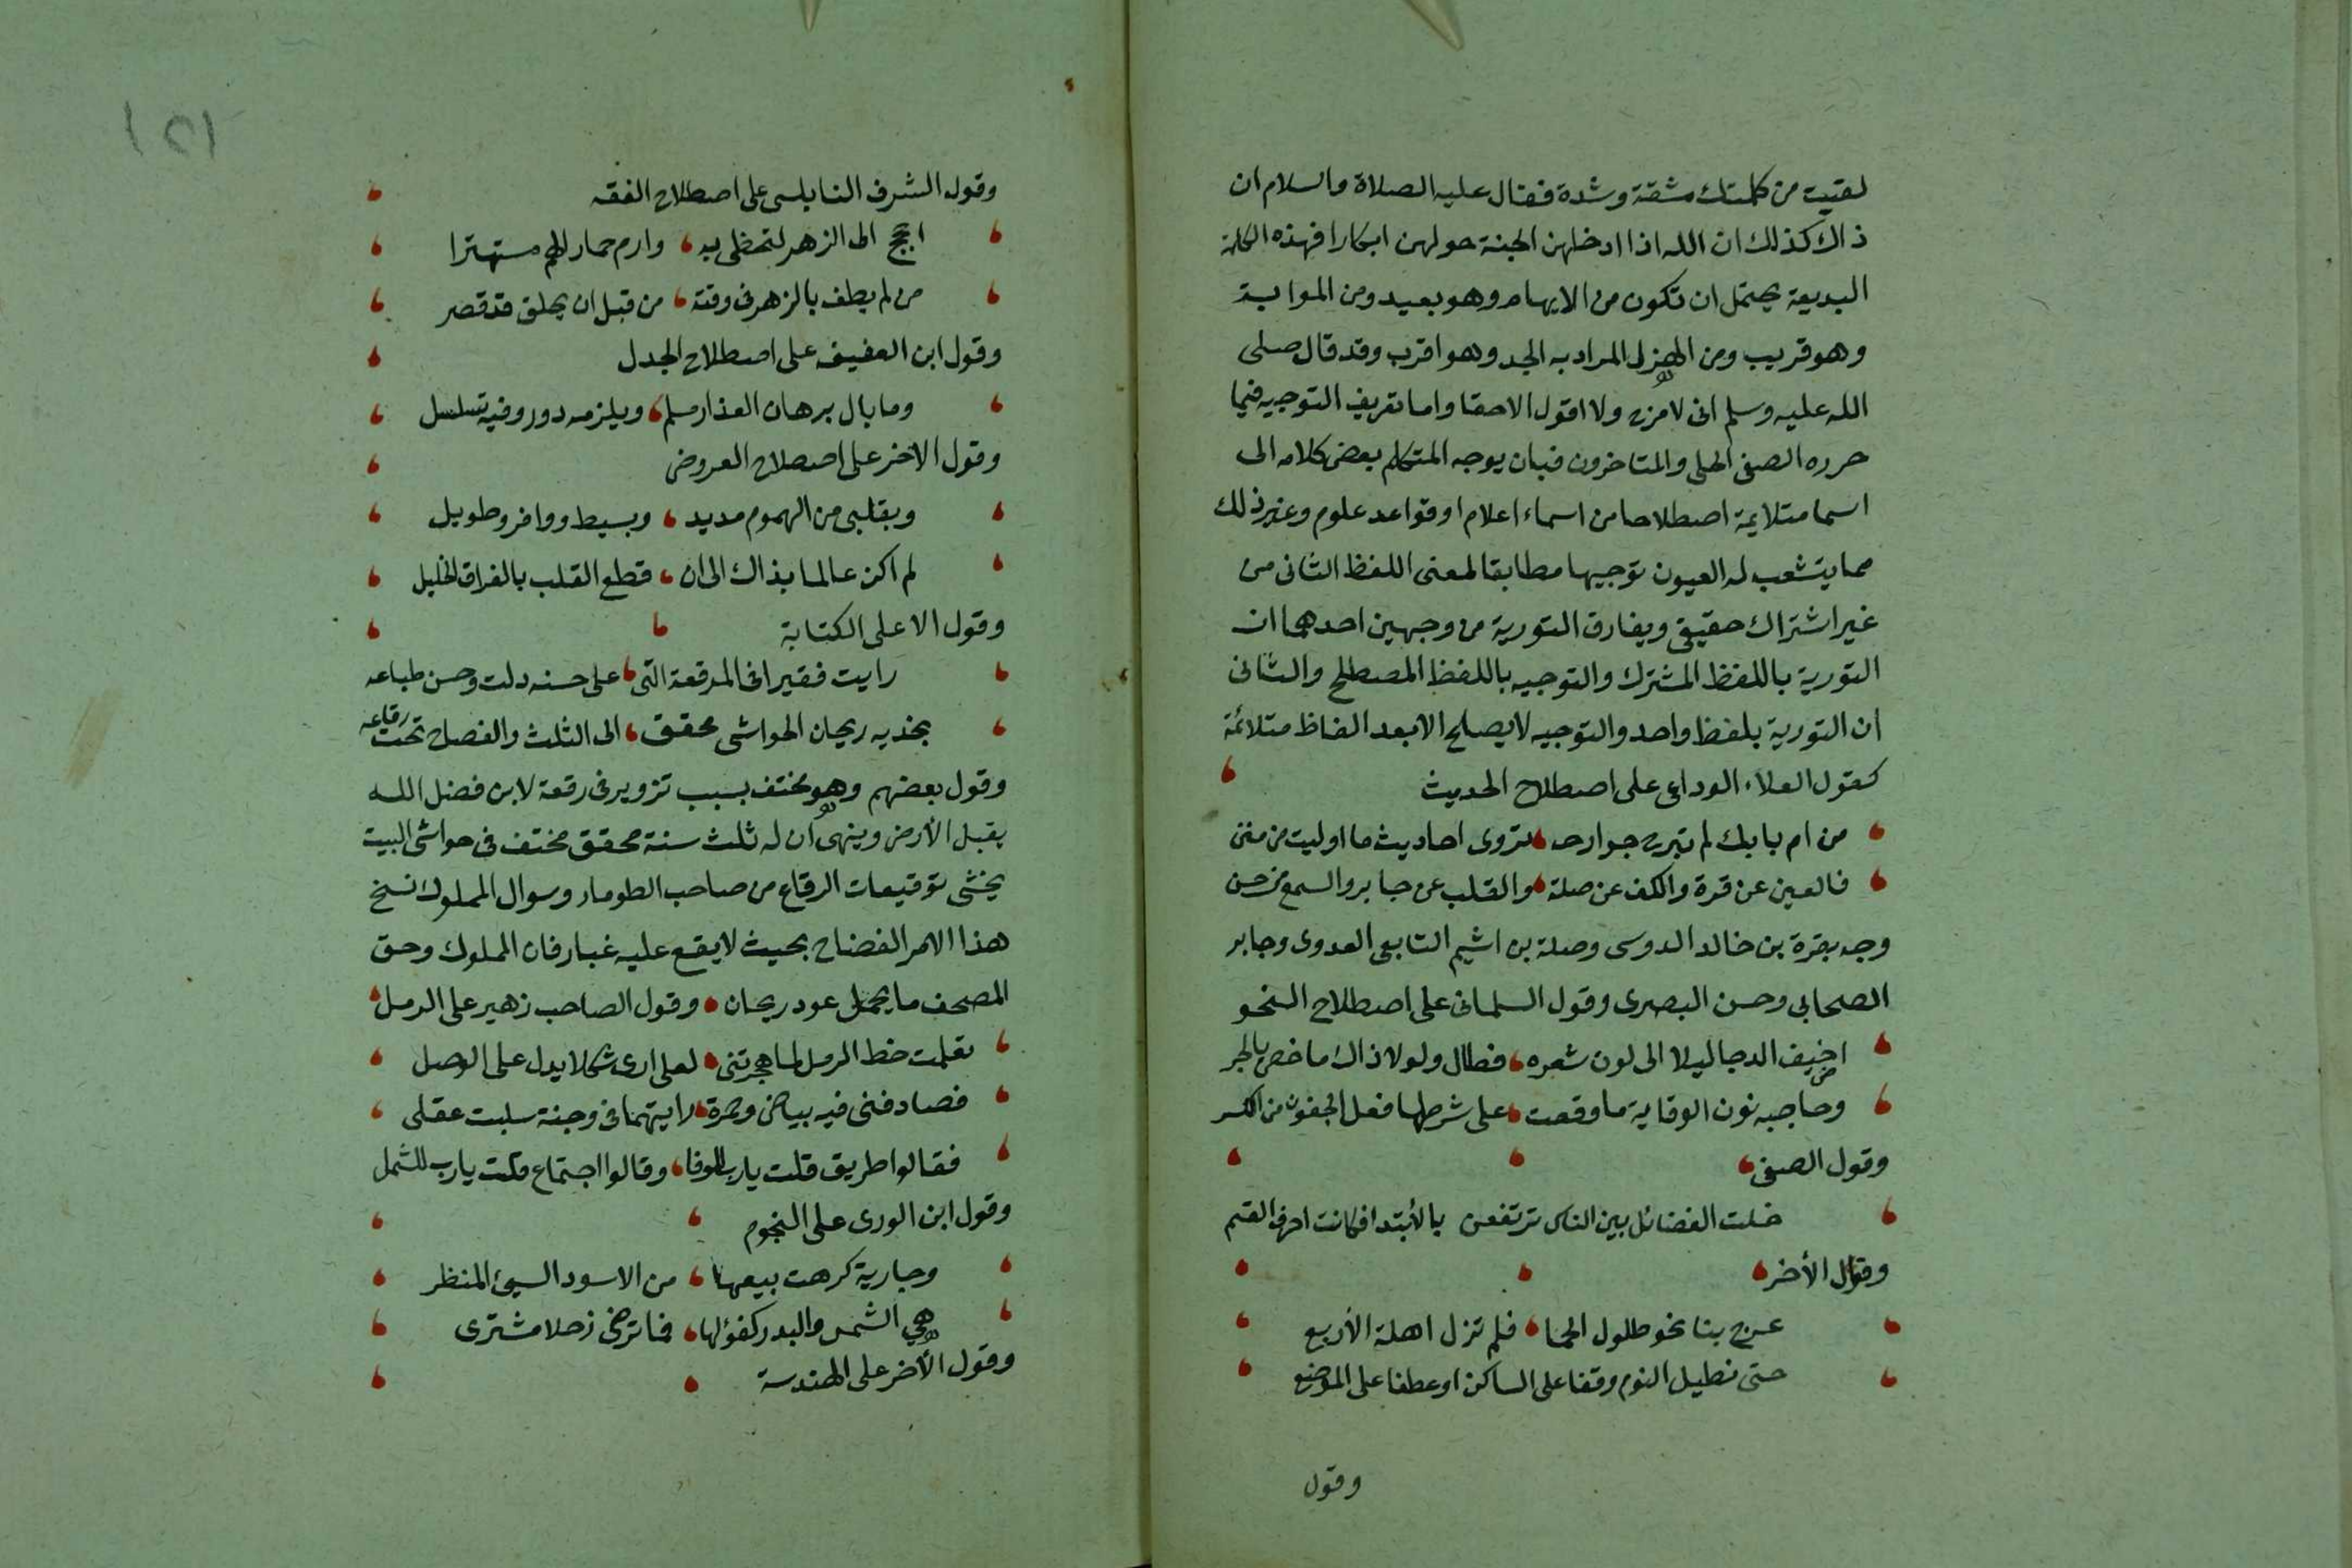 لقيت من كلمتك مشقة وشدة فقال عليه الصلاة والسلام ان
ذاك كذلك ان الله اذا ادخلهن الجنة حولهن ابكارا فهذه الكلمة
البديعة يحتمل ان تكون من الايهام وهو بعيد ومن المواربة
وهو قريب ومن الهزل المراد به الجد وهو اقرب وقد قال صلى
الله عليه وسلم انى لامزح ولا اقول الاحقا واما تعريف التوجيه فيما
حرره الصفى الحلى والمتاخرون فبان يوجه المتكلم بعض كلامه الى
اسما متلايمة اصطلاحا من اسماء اعلام او قواعد علوم وغير ذلك
مما يتشعب له العيون توجيها مطابقا لمعنى اللفظ الثانى من
غير اشتراك حقيقى ويفارق التورية من وجهين احدهما ان
التورية باللفظ المشترك والتوجيه باللفظ المصطلح والثانى
ان التورية بلفظ واحد والتوجيه لا يصلح الابعد الفاظ متلائمة
كقول العلاء الوداعى على اصطلاح الحديث
من ام بابك لم تبرح جوارحه تروى احاديث ما اوليت من منن
فالعين عن قرة والكف عن صلة والقلب عن جابر والسمع عن حسن
وجه بقرة بن خالد الدوسى وصلة بن اشيم التابعى العدوى وجابر
الصحابي وحسن البصرى وقول السلمانى على اصطلاح النحو
اضيف الدجا ليلا الى لون شعره فطال ولولا ذاك ما خص بالجر
وحاجبه نون الوقاية ما وقعت على شرطها فعل الجفون من الكسر
وقول الصفى
خلت الفضائل بين الناس ترتفعن بالأبتدا فكانت احرف القسم
وقول الأخر
عرج بنا نحو طلول الحما فلم تزل اهلة الأربع
حتى نطيل النوم وقفا على الساكن او عطفا على الموضع
وقول
١٥١
وقول الشرف النابلسى على اصطلاح الفقه
احجج الى الزهر لتحظى به وارم جمار الهم مستهترا
من لم يطف بالزهر فى وقته من قبل ان يحلق قد قصر
وقول ابن العفيف على اصطلاح الجدل
وما بال برهان العذار مسلم ويلزمه دور وفيه تسلسل
وقول الاخر على اصطلاح العروض
وبقلبى من الهموم مديد وبسيط ووافر وطويل
لم اكن عالما بذاك الى ان قطع القلب بالفراق الخليل
وقول الا على الكتابة
رايت فقيرا فى المرقعة التى على حسنه دلت وحسن طباعه
بخديه ريحان الحواشى محقق الى الثلث والفضاح تحت رقاعه
وقول بعضهم وهو مختف بسبب تزوير فى رقعة لابن فضل الله
يقبل الأرض وينهى ان له ثلث سنة محقق مختف فى حواشى البيت
يخشى توقيعات الرقاع من صاحب الطومار وسوال المملوك نسخ
هذا الامر الفضاح بحيث لا يقع عليه غبار فان المملوك وحق
المصحف ما يحمل عود ريحان وقول الصاحب زهير على الرمل
تعلمت خط الرمل لما هجرتنى لعلى ارى شكلا يدل على الوصل
فصادفنى فيه بياض وحمرة رايتهما فى وجنة سلبت عقلى
فقالوا طريق قلت يارب للوفا وقالوا اجتماع قلت يارب للشمل
وقول ابن الوردى على النجوم
وجارية كرهت بيعها من الاسود السيئ المنظر
هي الشمس والبدر كفؤلها فما ترضى زحلا مشترى
وقول الأخر على الهندسة